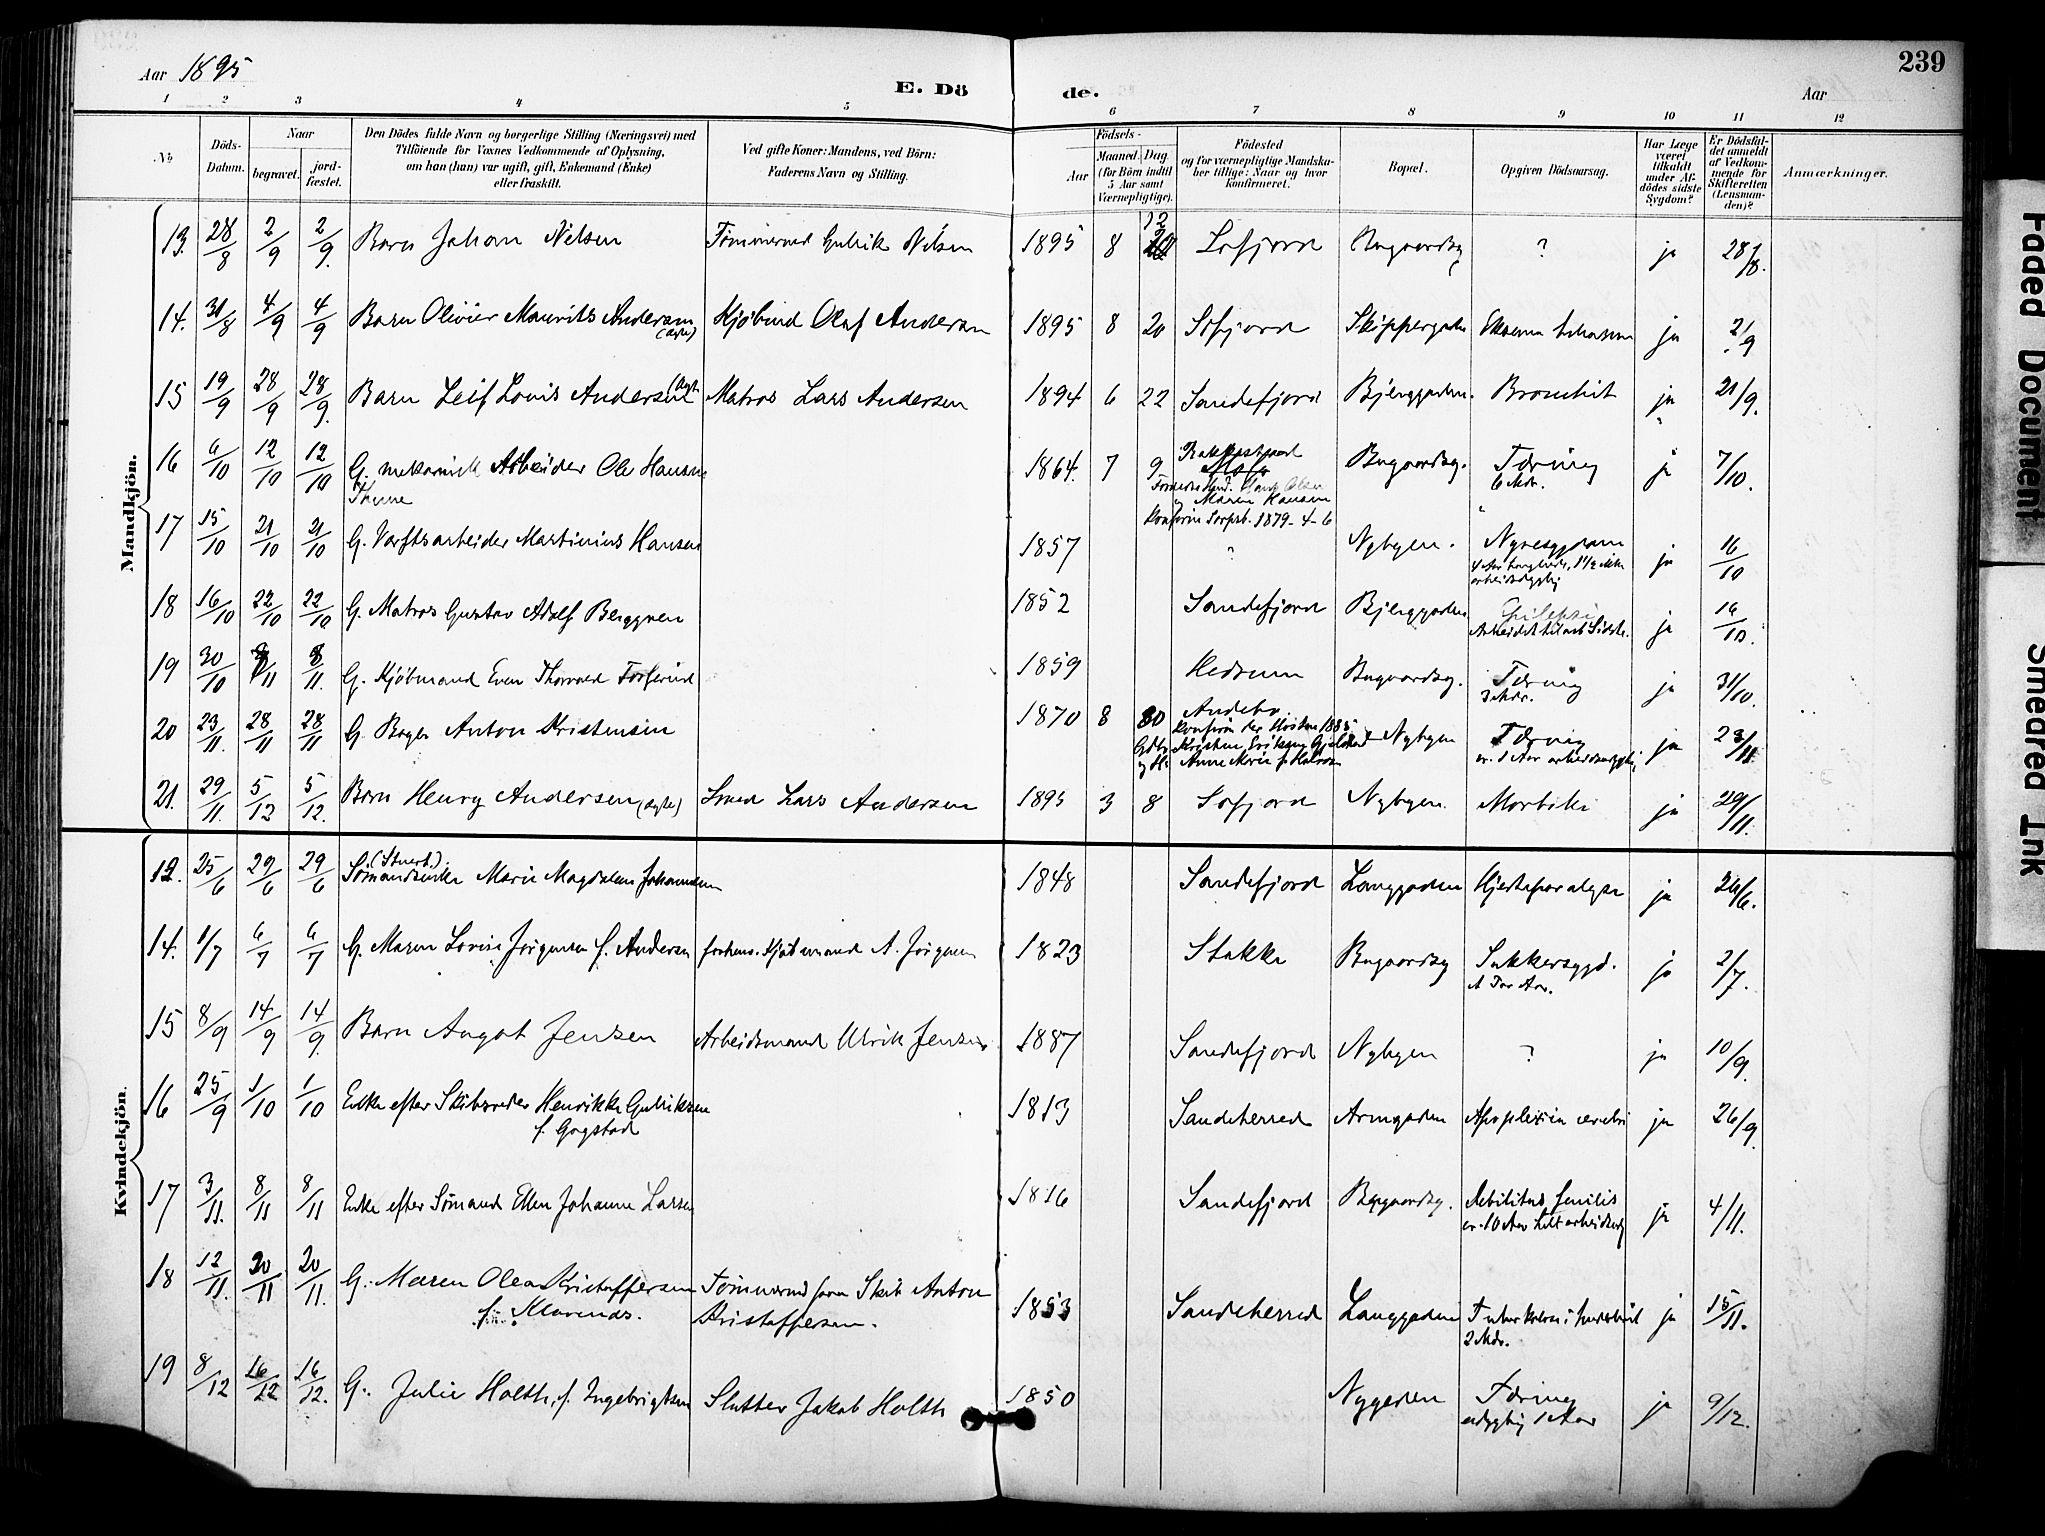 239
Aar 1895
E. Döde.
Aar
1 2 3 4 5 6 7 8 9 10 11 12
No
Döds-Datum.
Naar
begravet.
jord-fæstet.
Den Dödes fulde Navn og borgerlige Stilling (Næringsvei) med
Tilföiende for Voxnes Vedkommende af Oplysning,
om han (hun) var ugift, gift, Enkemand (Enke)
eller fraskilt.
Ved gifte Koner: Mandens, ved Börn:
Faderens Navn og Stilling.
Födsels-
Aar
Maaned. Dag
(for Börn indtil
5 Aar samt
Værnepligtige).
Födested
og for værnepligtige Mandska-
ber tillige: Naar og hvor
konfirmeret.
Bopæl.
Opgiven Dödsaarsag.
Har Læge
været
tilkaldt
under Af-
dödes sidste
Sygdom?
Er Dödsfal-
det anmeldt
af Vedkom-
mende for
Skifteretten
(Lensman-
den)?
Anmærkninger.
Mandkjön.
13. 28/8 2/9 2/9. Barn Johan Nilsen Tømmermd Gulrik Nilsen 1895 8 12 Sofjord Bugaardsg ? ja 28/8.
14. 31/8 4/9 4/9 Barn Olivier Mauritz Andersen (ægte) Kjøbmd Olaf Andersen 1895 8 20 Sofjord Skippergaden ja 2/9
15 19/9 28/9 28/9. Barn Leif Louis Andersen (ægte) Matros Lars Andersen 1894 6 22 Sandefjord Bjerggaden. Bronchit ja 21/9.
16 6/10 12/10 12/10 G. mekanisk Arbeider Ole Hansen
Thune 1864. 7 9 Bugaardsg. Tæring
6 Mdr. ja 7/10.
Maren Hansen
Konfirm Sarpsb. 1879-4-6
17 15/10 21/10 21/10 G. Værftsarbeider Martinius Hansen 1857 " Nybyen. Nyresygdom
ja 16/10
18 16/10 22/10 22/10 G. Matros Gustav Adolf Berggren 1852 Sandefjord Bjerggaden. Epilepsi
Arbeidet til sidste. ja 16/10.
19 30/10 8/11 8/11. G. Kjøbmand Even Thorvald 1859 Hedrum Bugaardsg. Tæring
3 Mdr. ja 31/10.
20 23/11. 28/11 28/11 G. Bager Anton Kristensen 1870 8 30 Andebo.
Konfirm der Høsten 1885
Kristen Eriksen
Anne Marie
Nybyen Tæring
er. 1 Aar arbeidsudygtig ja 23/11
21. 29/11. 5/12 5/12. Barn Henry Andersen (ægte) Smed Lars Andersen 1895 3 8 Sofjord Nybyen. Morbili ja 29/11.
Kvindekjön.
12. 25/6 29/6 29/6 (Stuert).
Sømandsenke Marie Magdalene Johannesen 1848 Sandefjord Langgaden Hjerteparalyse ja 26/6.
14. 1/7 6/7 6/7 G. Maren Lovise Jørgensen f. Andersen forhenv. Kjøbmand A. Jørgensen 1823 Stokke Bugaardsg Sukkersygd.
ja 2/7.
15 8/9 14/9 14/9. Barn Angot Jensen Arbeidsmand Ulrik Jensen 1887 Sandefjord Nybyen ? ja 10/9.
16 25/9 1/10 1/10 Enke efter Skibsreder Henrikke Gulriksen
f. Gogstad 1813 Sandeherred Apoplexia cerebri ja 26/9.
17 3/11. 8/11 8/11 Enke efter Sømand Ellen Johanne Larsen 1816 Sandefjord Bugaardsg. Debilitas senilis
ja 4/11.
18 12/11. 20/11 20/11. G. Maren Olea Kristoffersen
Tømmermd Anton
Kristoffersen. 1853 Sandeherred Langgaden
2 Mdr. ja 15/11.
19 8/12 16/12 16/12. G. Julie Holth, f. Ingebrigtsen Slagter Jakob Holth 1850 Nygaden Tæring
udygtig 1 Aar ja 9/12.
Faded Document
Smeared Ink